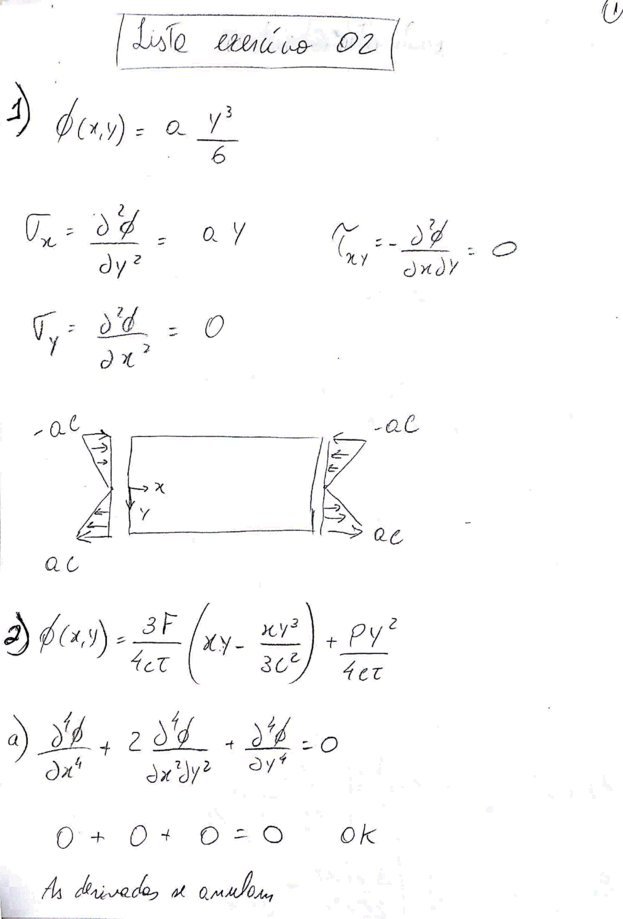 ①
Lista exercício 02
1) ϕ(x,y) = a y³/6
σx = ∂²ϕ/∂y² = a y   τxy = -∂²ϕ/∂x∂y = 0
σy = ∂²ϕ/∂x² = 0
-ac   -ac
x
y
ac   ac
2) ϕ(x,y) = 3F/4cτ (xy - xy³/3c²) + Py²/4cτ
a) ∂⁴ϕ/∂x⁴ + 2 ∂⁴ϕ/∂x²∂y² + ∂⁴ϕ/∂y⁴ = 0
0 + 0 + 0 = 0   OK
As derivadas se anulam